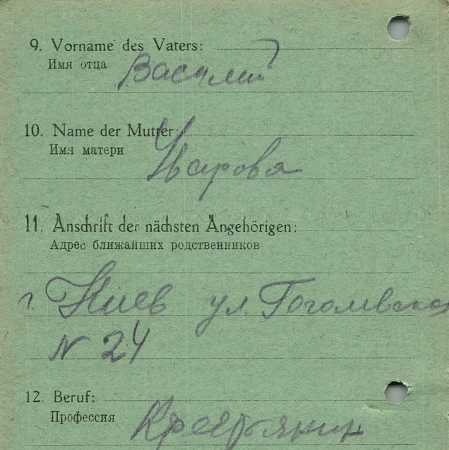 9. Vorname des Vaters:
Имя отца Василий
10. Name der Mutter:
Имя матери Уварова
11. Anschrift der nächsten Angehörigen:
Адрес ближайших родственников
г. Киев ул. Гоголевская
N 24
12. Beruf:
Профессия Крестьянин